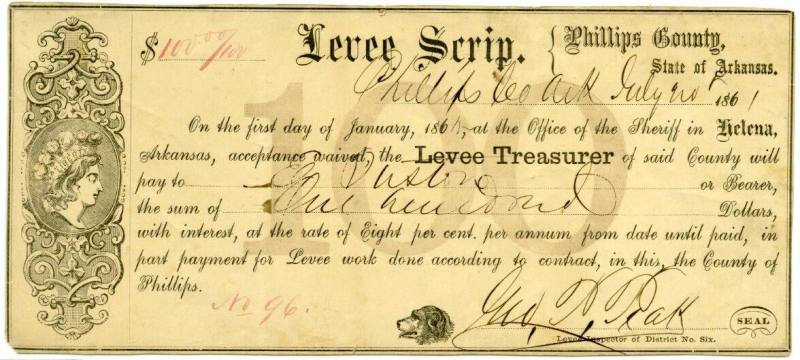 $ 100.00/100 Levee Scrip. { Phillips County,
State of Arkansas.
Phillips Co Ark July 1861
100
On the first day of January, 186 , at the Office of the Sheriff in Helena,
Arkansas, acceptance waived, the Levee Treasurer of said County will
pay to or Bearer,
the sum of One hundred Dollars,
with interest, at the rate of Eight per cent. per annum from date until paid, in
part payment for Levee work done according to contract, in this, the County of
Phillips.
No 96.
Geo. SEAL
Levee Inspector of District No. Six.